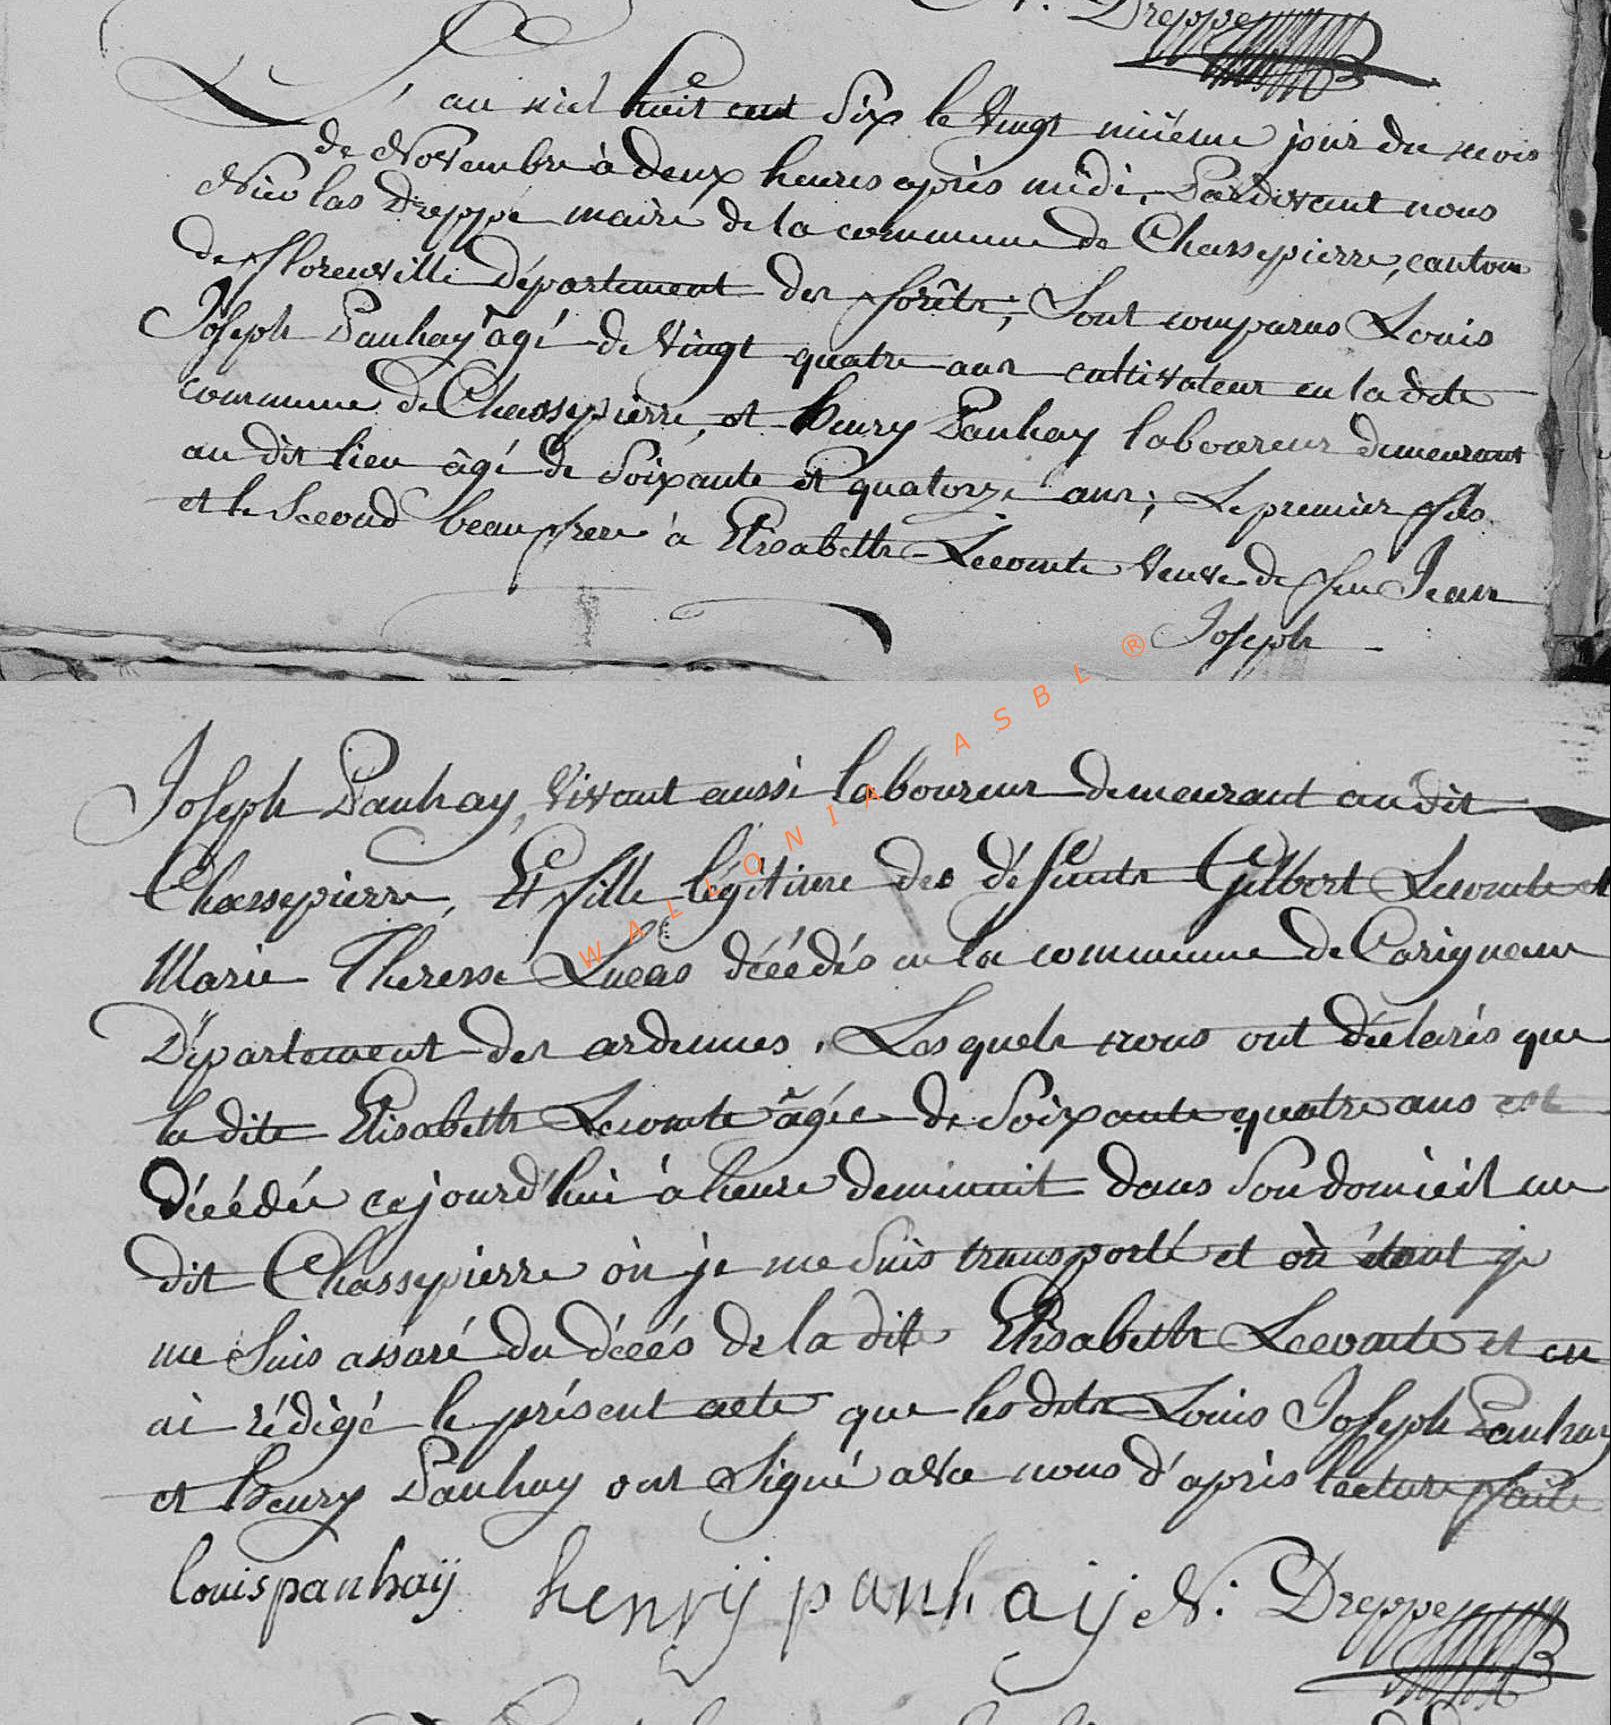 N. Dreppe
L'an mil huit cent Six le Vingt jour du mois
de Novembre à deux heures après midi, Pardevant nous
Nicolas Dreppe maire de la commune de Chassepierre, canton
de florenville département des forêts; Sont comparus Louis
Joseph Panhay agé de Vingt quatre ans cultivateur en la dite
commune de Chassepierre, et henry Panhay laboureur demeurant
au dit lieu âgé de Soixante et quatorze ans; Le premier fils
et le Second beau frere à Elisabeth Lecomte Veuve de feu Jean
Joseph
Joseph Panhay, Vivant aussi laboureur demeurant au dit
Chassepierre, Et fille légitime des défunts Gilbert Lecomte et
Marie Theresse Lucas décédés en la commune de Carignan
Département des ardennes. Lesquels nous ont déclarés que
la dite Elisabeth Lecomte âgée de Soixante quatre ans est
décédée cejourd'hui à heure deminuit dans Son domicil au
dit Chassepierre où je me Suis transporté et où étant je
me Suis assuré du décés de la dite Elisabeth Lecomte et en
ai rédigé le présent acte que les dits Louis Joseph Panhay
et henry Panhay ont Signé avec nous d'après lecture faite
louis panhaÿ henrÿ panhaÿ N: Dreppe
WALLONIA ASBL ®